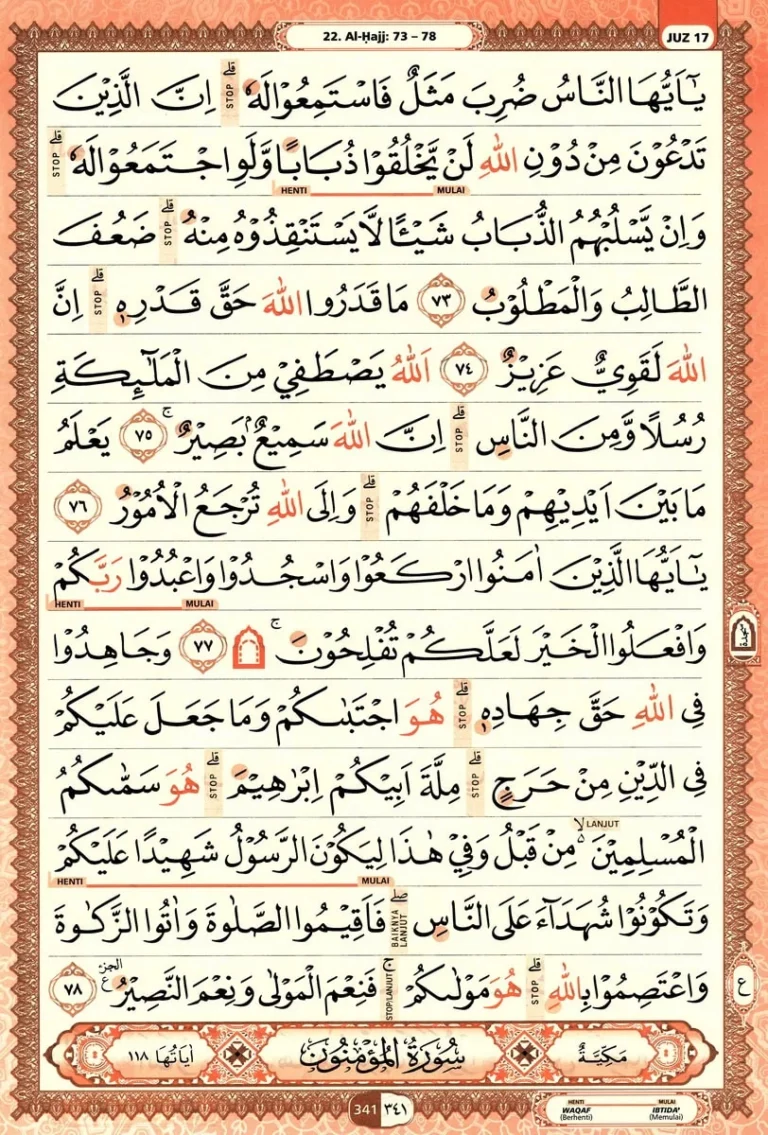 22. Al-Ḥajj: 73 – 78
JUZ 17
يٰٓاَيُّهَا النَّاسُ ضُرِبَ مَثَلٌ فَاسْتَمِعُوْا لَهٗ ۗ STOP اِنَّ الَّذِيْنَ
تَدْعُوْنَ مِنْ دُوْنِ اللّٰهِ لَنْ يَّخْلُقُوْا ذُبَابًا وَّلَوِ اجْتَمَعُوْا لَهٗ ۗ STOP
HENTI MULAI
وَاِنْ يَّسْلُبْهُمُ الذُّبَابُ شَيْـًٔا لَّا يَسْتَنْقِذُوْهُ مِنْهُ ۗ STOP ضَعُفَ
الطَّالِبُ وَالْمَطْلُوْبُ ٧٣ مَا قَدَرُوا اللّٰهَ حَقَّ قَدْرِهٖ ۗ STOP اِنَّ
اللّٰهَ لَقَوِيٌّ عَزِيْزٌ ٧٤ اَللّٰهُ يَصْطَفِيْ مِنَ الْمَلٰۤىِٕكَةِ
رُسُلًا وَّمِنَ النَّاسِ ۗ STOP اِنَّ اللّٰهَ سَمِيْعٌۢ بَصِيْرٌ ۚ ٧٥ يَعْلَمُ
مَا بَيْنَ اَيْدِيْهِمْ وَمَا خَلْفَهُمْ ۗ STOP وَاِلَى اللّٰهِ تُرْجَعُ الْاُمُوْرُ ٧٦
يٰٓاَيُّهَا الَّذِيْنَ اٰمَنُوا ارْكَعُوْا وَاسْجُدُوْا وَاعْبُدُوْا رَبَّكُمْ
HENTI MULAI
وَافْعَلُوا الْخَيْرَ لَعَلَّكُمْ تُفْلِحُوْنَ ۚ ۩ ٧٧ وَجَاهِدُوْا
سجدة
فِى اللّٰهِ حَقَّ جِهَادِهٖ ۗ STOP هُوَ اجْتَبٰىكُمْ وَمَا جَعَلَ عَلَيْكُمْ
فِى الدِّيْنِ مِنْ حَرَجٍ ۗ STOP مِلَّةَ اَبِيْكُمْ اِبْرٰهِيْمَ ۗ STOP هُوَ سَمّٰىكُمُ
LANJUT
الْمُسْلِمِيْنَ ەۙ مِنْ قَبْلُ وَفِيْ هٰذَا لِيَكُوْنَ الرَّسُوْلُ شَهِيْدًا عَلَيْكُمْ
HENTI MULAI
وَتَكُوْنُوْا شُهَدَاۤءَ عَلَى النَّاسِ ۖ BAIKNYA LANJUT فَاَقِيْمُوا الصَّلٰوةَ وَاٰتُوا الزَّكٰوةَ
وَاعْتَصِمُوْا بِاللّٰهِ ۗ STOP هُوَ مَوْلٰىكُمْ ۚ STOP/LANJUT فَنِعْمَ الْمَوْلٰى وَنِعْمَ النَّصِيْرُ الجزء ع ٧٨
ع
مَكِيَّةٌ سُوْرَةُ الْمُؤْمِنُوْنَ اٰيَاتُهَا ١١٨
341 ٣٤١
HENTI MULAI
WAQAF IBTIDA'
(Berhenti) (Memulai)